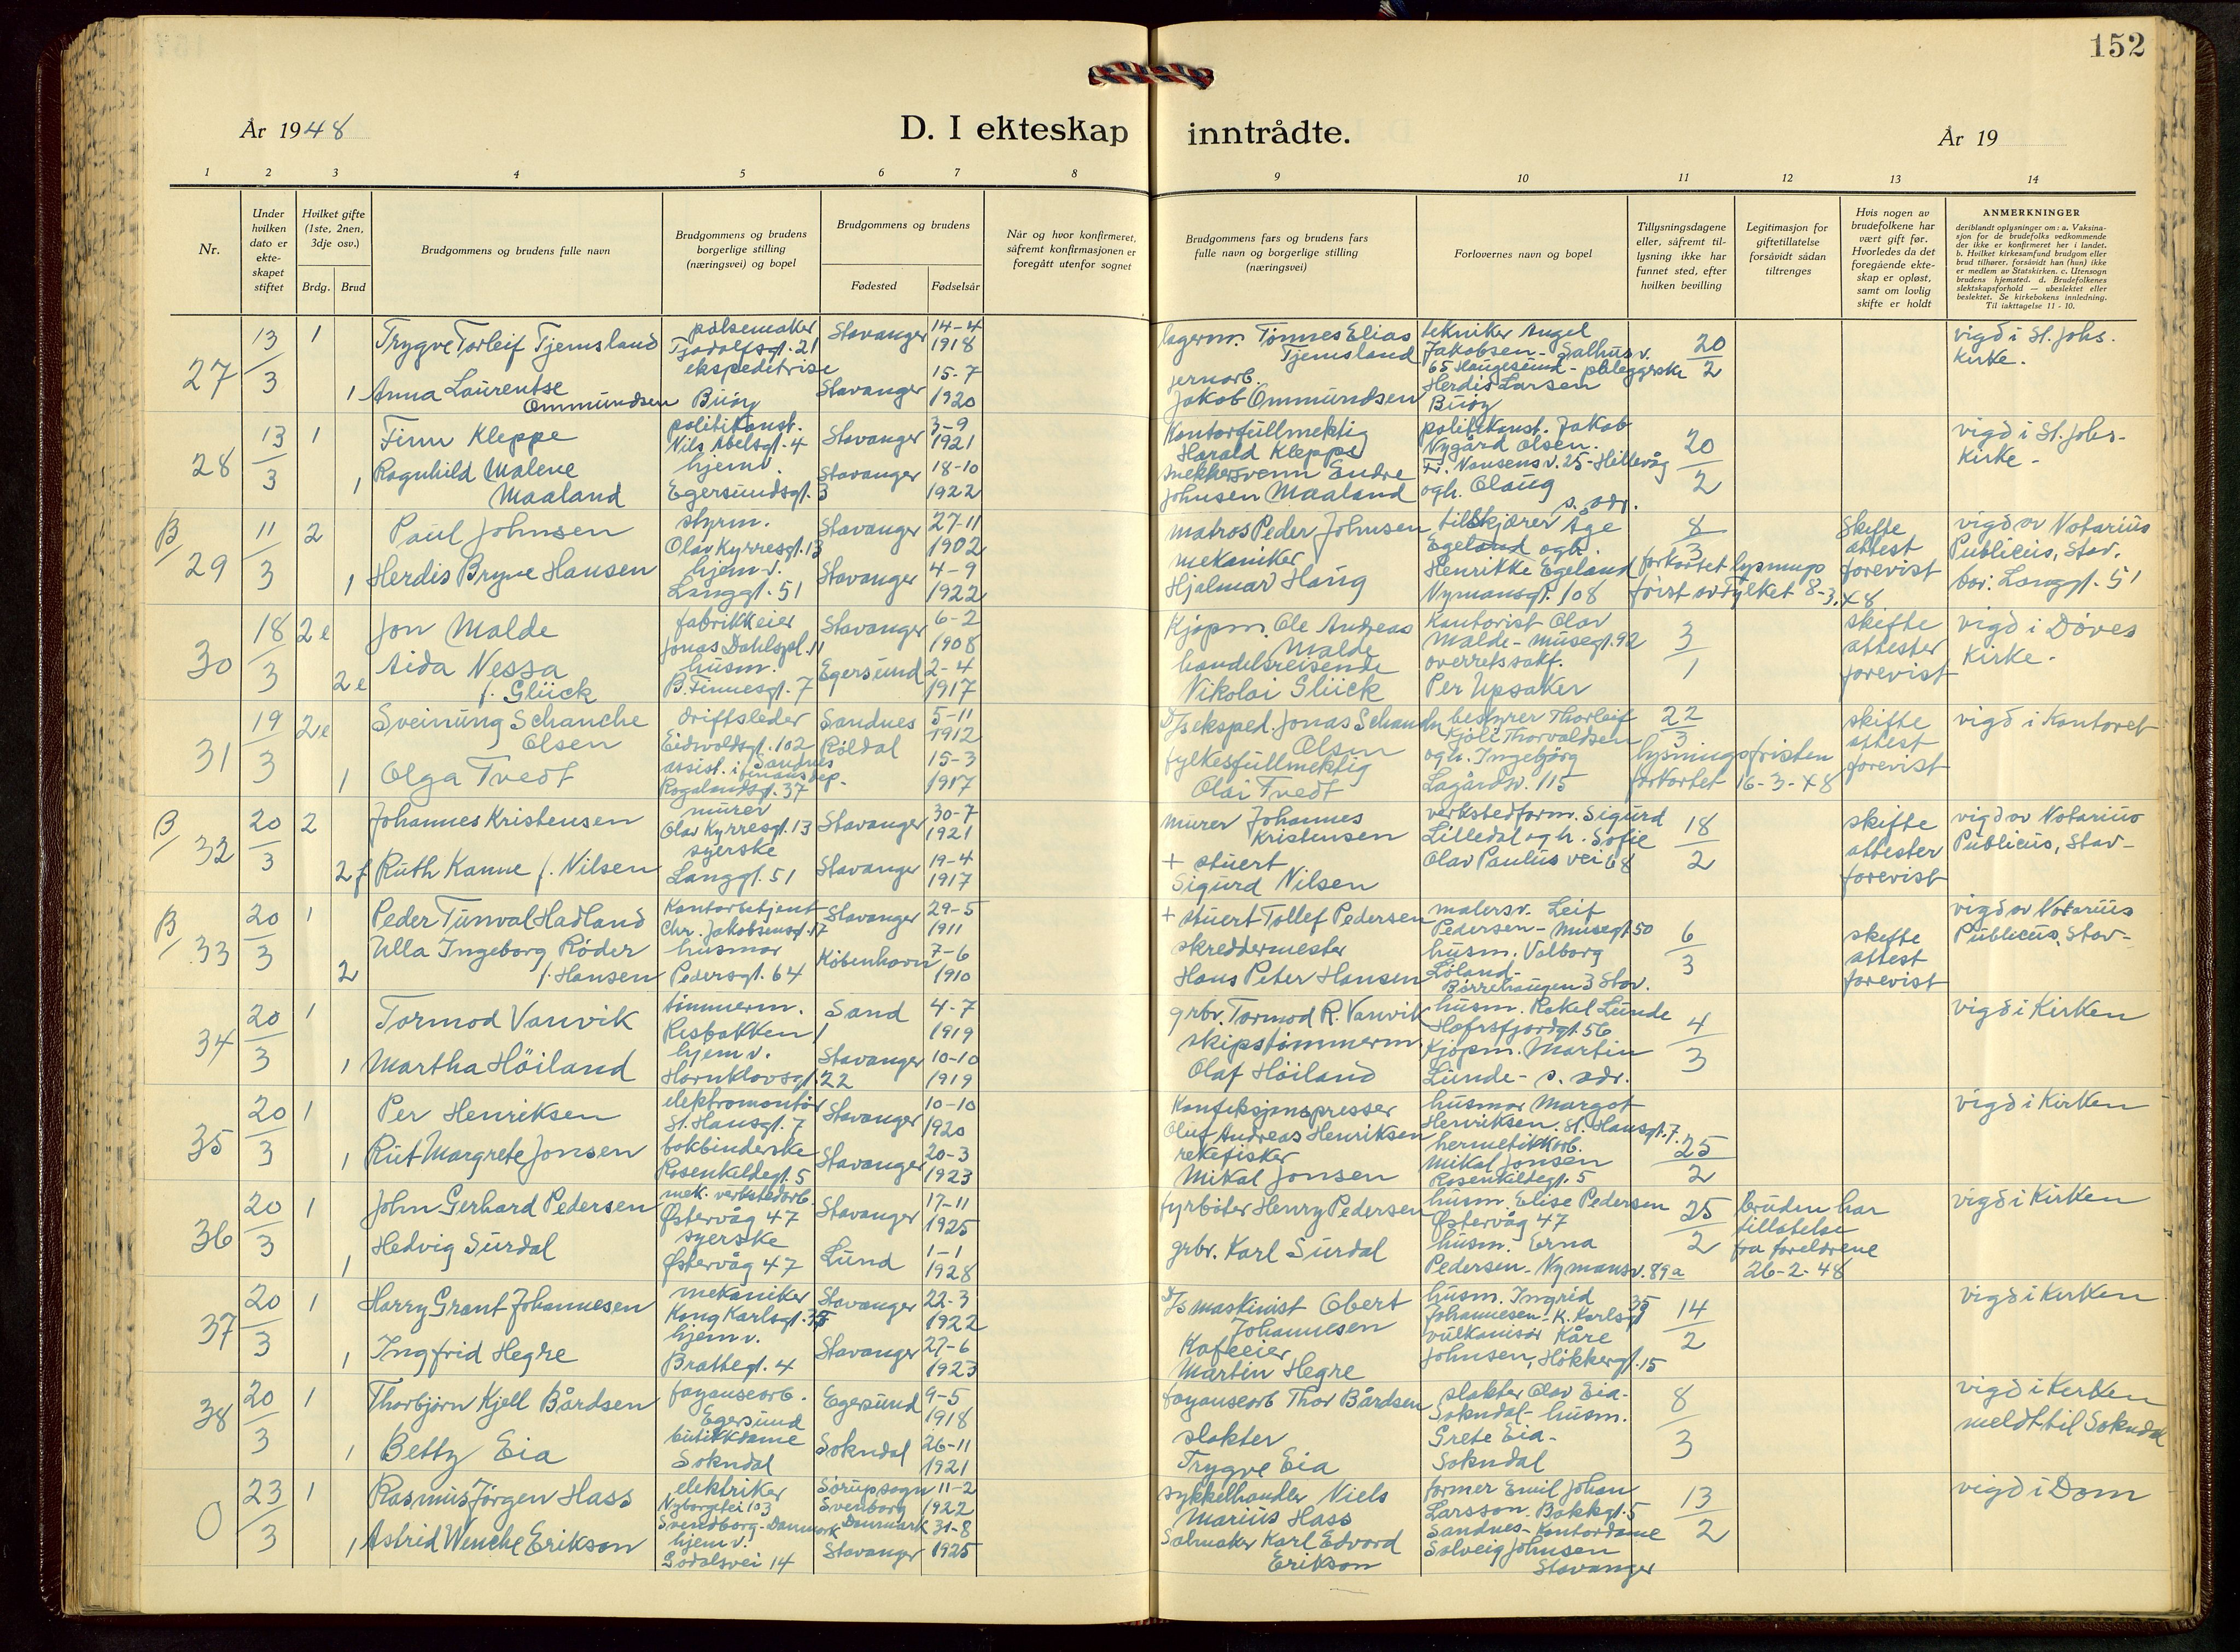 152
År 1948
D. I ekteskap inntrådte.
År 19
1 2 3 4 5 6 7 8 9 10 11 12 13 14
Nr.
Under hvilken dato er ekteskapet stiftet
Hvilket gifte (1ste, 2nen, 3dje osv.)
Brdg. Brud
Brudgommens og brudens fulle navn
Brudgommens og brudens borgerlige stilling (næringsvei) og bopel
Brudgommens og brudens
Fødested Fødselsår
Når og hvor konfirmeret, såfremt konfirmasjonen er foregått utenfor sognet
Brudgommens fars og brudens fars fulle navn og borgerlige stilling (næringsvei)
Forlovernes navn og bopel
Tillysningsdagene eller, såfremt tillysning ikke har funnet sted, efter hvilken bevilling
Legitimasjon for giftetillatelse forsåvidt sådan tiltrenges
Hvis nogen av brudefolkene har vært gift før. Hvorledes da det foregående ekteskap er opløst, samt om lovlig skifte er holdt
ANMERKNINGER
deriblandt oplysninger om: a. Vaksinasjon for de brudefolks vedkommende der ikke er konfirmeret her i landet. b. Hvilket kirkesamfund brudgom eller brud tilhører, forsåvidt han (hun) ikke er medlem av Statskirken. c. Utensogn brudens hjemsted. d. Brudefolkenes slektskapsforhold — ubeslektet eller beslektet. Se kirkebokens innledning. Til iakttagelse 11 - 10.
27 13/3 1 Trygve Torleif Tjemsland pølsemaker Tjodolfsgt. 21 Stavanger 14-4 1918 lagerm. Tønnes Elias Tjemsland tekniker Angel Jakobsen - Salhusv. 65 Haugesund - pleggerske 20/2 vigd i St. Johs. Kirke.
1 Anna Laurentse Ommundsen ekspeditrise Buøy Stavanger 15-7 1920 jernarb. Jakob Ommundsen Herdis Larsen Buøy
28 13/3 1 Finn Kleppe politikonst. Nils Abelsgt. 4 Stavanger 3-9 1921 Kontorfullmektig Harald Kleppe politikonst. Jakob Nygård Olsen. Fr. Nansens v. 25 - Hillevåg 20/2 vigd i St. Johs. Kirke -
1 Ragnhild Malene Maaland hjemv. Egersundsgt. 3 Stavanger 18-10 1922 Endre Johnsen Maaland ogh. Olaug s. adr.
B/ 29 11/3 2 Paul Johnsen styrm. Olav Kyrresgt. 13 Stavanger 27-11 1902 matros Peder Johnsen tilskjærer Åge Egeland ogh. 8/3 Skifte attest forevist vigd av Notarius Publicus, Stav.
1 Herdis Bryne Hansen hjemv. Langgt. 51 Stavanger 4-9 1922 mekaniker Hjalmar Haug Henrikke Egeland Nymansgt. 108 forkortet lysnings frist av Fylket 8-3.48 bor: Langgt. 51
30 18/3 2e Jon Malde fabrikkeier Jonas Dahlspl. 11 Stavanger 6-2 1908 Kjøpm. Ole Andreas Malde Kontorist Olav Malde - Musegt. 92 3/1 skifte attester forevist vigd i Døves Kirke -
2e Aida Nessa f. Glück husm. B. Finnesgt. 7 Egersund 2-4 1917 handelsreisende Nikolai Glück overretssakf. Per Upsaker
31 19/3 2e Sveinung Schanche Olsen driftsleder Eidsvoldsgt. 102 Sandnes Sandnes 5-11 1912 D/s eksped. Jonas Schanche Olsen bestyrer Thorleif Kjøll Thorvaldsen 22/3 skifte attest forevist vigd i Kontoret
1 Olga Tvedt assist. i finansdep. Rogalandsgt. 37 Røldal 15-3 1917 fylkesfullmektig Olai Tvedt ogh. Ingebjørg Lagårdsv. 115 lysningsfristen forkortet 16-3-48
B/ 32 20/3 2 Johannes Kristensen murer Olav Kyrresgt. 13 Stavanger 30-7 1921 murer Johannes Kristensen verkstedform. Sigurd Lilledal ogh. Sofie 18/2 skifte attester forevist vigd av Notarius Publicus, Stav-
2f Ruth Kanne f. Nilsen syerske Langgt. 51 Stavanger 19-4 1917 + stuert Sigurd Nilsen Olav Paulus vei 68
B/ 33 20/3 1 Peder Tunval Hadland Kontorbetjent Chr. Jakobsensgt. 17 Stavanger 29-5 1911 + stuert Tollef Pedersen malersv. Leif Pedersen - Musegt. 50 6/3 skifte attest forevist vigd av Notarius Publicus, Stav-
2 Ulla Ingeborg Röder f. Hansen husmor Pedersgt. 64 København 7-6 1910 skreddermester Hans Peter Hansen husm. Valborg Løland - Børrehaugen 3 Stav.
34 20/3 1 Tormod Vanvik tømmerm. Risbakken 1 Sand 4-7 1919 grbr. Tormod R. Vanvik husm. Rakel Lunde Hafrsfjordgt. 56 4/3 vigd i Kirken
1 Martha Höiland hjemv. Hornklovsgt. 22 Stavanger 10-10 1919 skipstømmerm. Olaf Höiland Kjøpm. Martin Lunde - s. adr.
35 20/3 1 Per Henriksen elektromontør St. Hansgt. 7 Stavanger 10-10 1920 Konfeksjonspresser Oluf Andreas Henriksen husmor Margot Henriksen. St. Hansgt. 7. 25/2 vigd i Kirken
1 Rut Margrete Jonsen bokbinderske Rosenkildegt. 5 Stavanger 20-3 1923 rekefisker Mikal Jonsen hermetikkarb. Mikal Jonsen Rosenkildegt. 5
36 20/3 1 John Gerhard Pedersen mek. verkstedarb. Østervåg 47 Stavanger 17-11 1925 fyrbøter Henry Pedersen husm. Elise Pedersen Østervåg 47 25/2 bruden har tillatelse fra foreldrene 26-2-48 vigd i Kirken
1 Hedvig Surdal syerske Østervåg 47 Lund 1-1 1928 grbr. Karl Surdal husm. Erna Pedersen - Nymansv. 89a
37 20/3 1 Harry Grant Johannesen mekaniker Kong Karlsgt. 35 Stavanger 22-3 1922 D/s maskinist Obert Johannesen husm. Ingrid Johannesen - K. Karlsgt 35 14/2 vigd i Kirken
1 Ingfrid Hegre hjemv. Brattegt. 4 Stavanger 27-6 1923 Kafeeier Martin Hegre vulkanisør Kåre Johnsen, Hökkergt. 15
38 20/3 1 Thorbjørn Kjell Bårdsen fayansearb. Egersund Egersund 9-5 1918 fayansearb Thor Bårdsen slakter Olav Eia - Sokndal - husm. 8/3 vigd i Kirken meldt til Sokndal
1 Betty Eia butikkdame Sokndal Sokndal 26-11 1921 slakter Trygve Eia Grete Eia - Sokndal
0 23/3 1 Rasmus Jörgen Hass elektriker Nyborgvei 103 Svendborg - Danmark Sørup sogn Svenborg Danmark 11-2 1922 sykkelhandler Niels Marius Hass former Emil Johan Larsson Bakkgt. 5 Sandnes - 13/2 vigd i Dom
1 Astrid Wenche Erikson hjemv. Godalsvei 14 Stavanger 31-8 1925 Salmaker Karl Edvard Erikson Kontordame Solveig Johnsen Stavanger